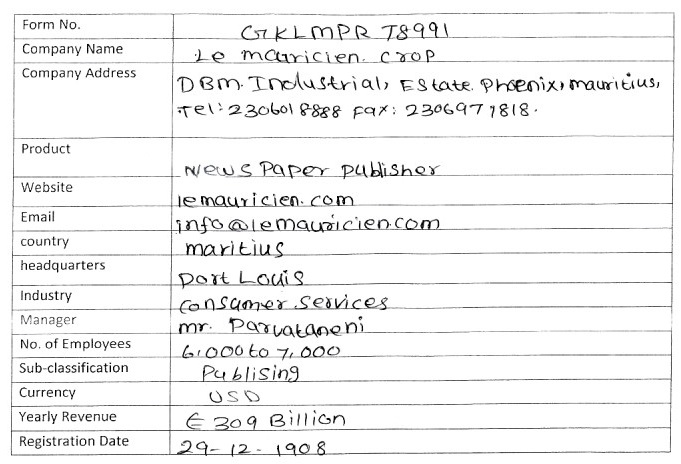 Form No. GKLMPR T8991
Company Name Le mauricien. crop
Company Address DBM. Industrial, EState. Phoenix, mauritius,
Tel: 2306018888 Fax: 2306971818.
Product News Paper publisher
Website lemauricien.com
Email info@lemauricien.com
country maritius
headquarters Port Louis
Industry Consumer Services
Manager mr. Parvataneni
No. of Employees 6,000 to 7,000
Sub-classification Publising
Currency USD
Yearly Revenue € 309 Billion
Registration Date 29-12-1908